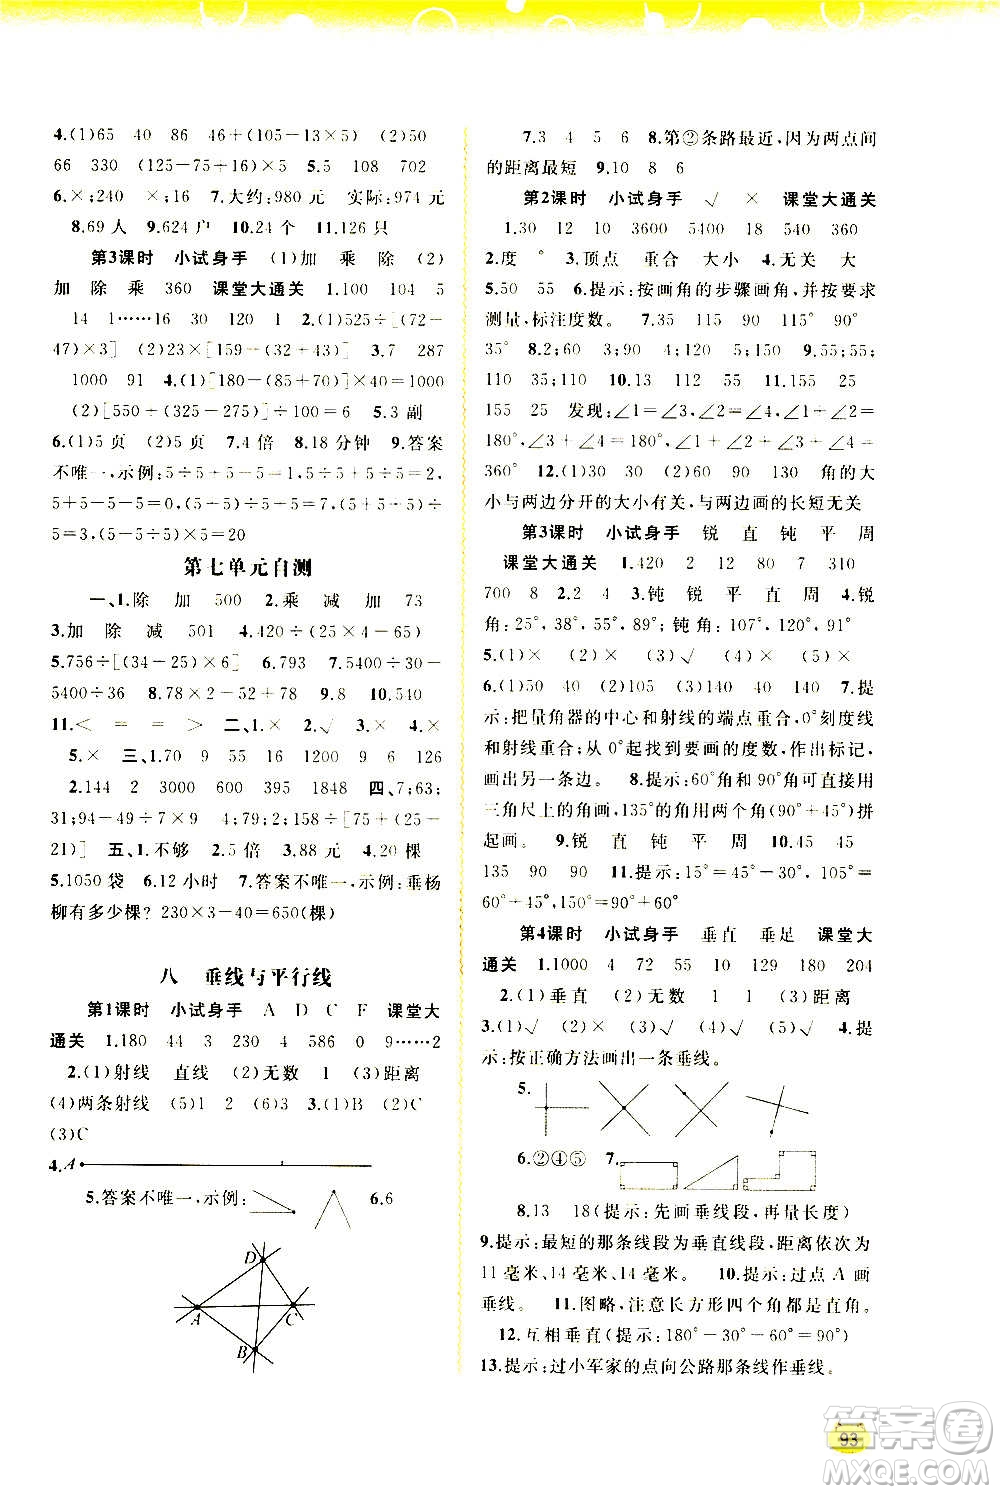 4.(1)65 40 86 46+(105-13×5) (2)50
66 330 (125-75+16)×5 5.5 108 702
6.×;240 ×;16 7.大约:980 元 实际:974 元
8.69 人 9.624 户 10.24 个 11.126 只
第3课时 小试身手 (1)加 乘 除 (2)
加 除 乘 360 课堂大通关 1.100 104 5
14 1……16 30 120 1 2.(1)525÷[(72-
47)×3] (2)23×[159-(32+43)] 3.7 287
1000 91 4.(1)[180-(85+70)]×40=1000
(2)[550+(325-275)]÷100=6 5.3 副
6.(1)5 页 (2)5 页 7.4 倍 8.18 分钟 9.答案
不唯一,示例:5÷5+5-5=1,5÷5+5÷5=2,
5+5-5-5=0,(5-5)÷5÷5=0,(5+5)÷
5+5=7,(5-5)×5+5=5,(5-5÷5)×5=20
第七单元自测
一、1.除 加 500 2.乘 减 加 73
3.加 除 减 501 4.420÷(25×4-65)
5.756÷[(34-25)×6] 6.793 7.5400-
5400÷36 8.78×2-52+78 9.150 10.540
11.< = = > 二、1.× 2.√ 3.× 4.×
5.× 三、1.70 9 55 16 1200 9 6 126
2.144 2 3000 600 395 1848 四、4;7;63;
31;94-49÷7×9 4;79;2;158÷[75+(25-
21)] 五、1.不够 2.5 倍 3.88 元 4.20 棵
5.1050 袋 6.12 小时 7.答案不唯一,示例:垂杨
柳有多少棵? 230×3-40=650(棵)
八 垂线与平行线
第1课时 小试身手 A D C F 课堂大
通关 1.180 44 3 230 4 586 0 9……2
2.(1)射线 直线 (2)无数 1 (3)距离
(4)两条射线 (5)1 2 (6)3 3.(1)B (2)C
(3)C
4. A
5.答案不唯一,示例: 6.6
D
A C
B
7.3 4 5 6 8.第②条路最近,因为两点间
的距离最短 9.10 8 6
第2课时 小试身手 √ × 课堂大通关
1.30 12 10 3600 5400 18 540 360
2.度 ° 3.顶点 重合 大小 4.无关 大
5.50 55 6.提示:按画角的步骤画角,并按要求
测量,标注度数。 7.35 115 90 115° 90°
35° 8.2;60;35;110;3;90;50;120 9.55;55;
110;35;110;35 10.13 46 11.155 25
155 25 发现:∠1=∠3,∠2=∠4;∠1+∠2=
180°,∠3+∠4=180°,∠1+∠2+∠3+∠4=
360° 12.(1)30 30 (2)60 90 130 角的大
小与两边分开的大小有关,与两边画的长短无关
第3课时 小试身手 锐 直 钝 平 周
课堂大通关 1.420 2 12 80 7 310
700 8 2.2 4 3.钝 锐 平 直 周 4.锐
角:25°、38°、55°、89° 钝角:107°、120°、173°
5.(1)× (2)× (3)√ (4)× (5)×
6.(1)50 40 (2)60 (3)140 40 140 7.提
示:把量角器的中心和射线的端点重合,0°刻度线
和射线重合;从 0°起找到要画的度数,作出标记,
画出另一条边。 8.提示:60°角和90°角可直接用
三角尺上的角画,135°的角用两个角(90°+45°)拼
起画。 9.锐 直 钝 平 周 10.45 45
135 90 90 11.75°=45°+30°、105°=
60°+45°、120°=60°+60°
第4课时 小试身手 垂直 垂足 课堂大
通关 1.1000 4 72 55 10 129 180 204
2.(1)垂直 (2)无数 1 1 (3)距离
3.(1)√ (2)× (3)√ (4)√ (5)× 4.提
示:按正确方法画出一条垂线。
5.
6.②④⑤ 7.
8.13 18(提示:先画垂线段,再量长度)
9.提示:最短的那条线段为垂直线段,距离依次为
11 毫米、14 毫米、14 毫米。 10.提示:过点 A 画
垂线。 11.图略,注意长方形四个角都是直角。
12.互相垂直(提示:180°-30°-60°=90°)
13.提示:过小军家的点向公路那条线作垂线。
93
答案圈
MXQE.COM